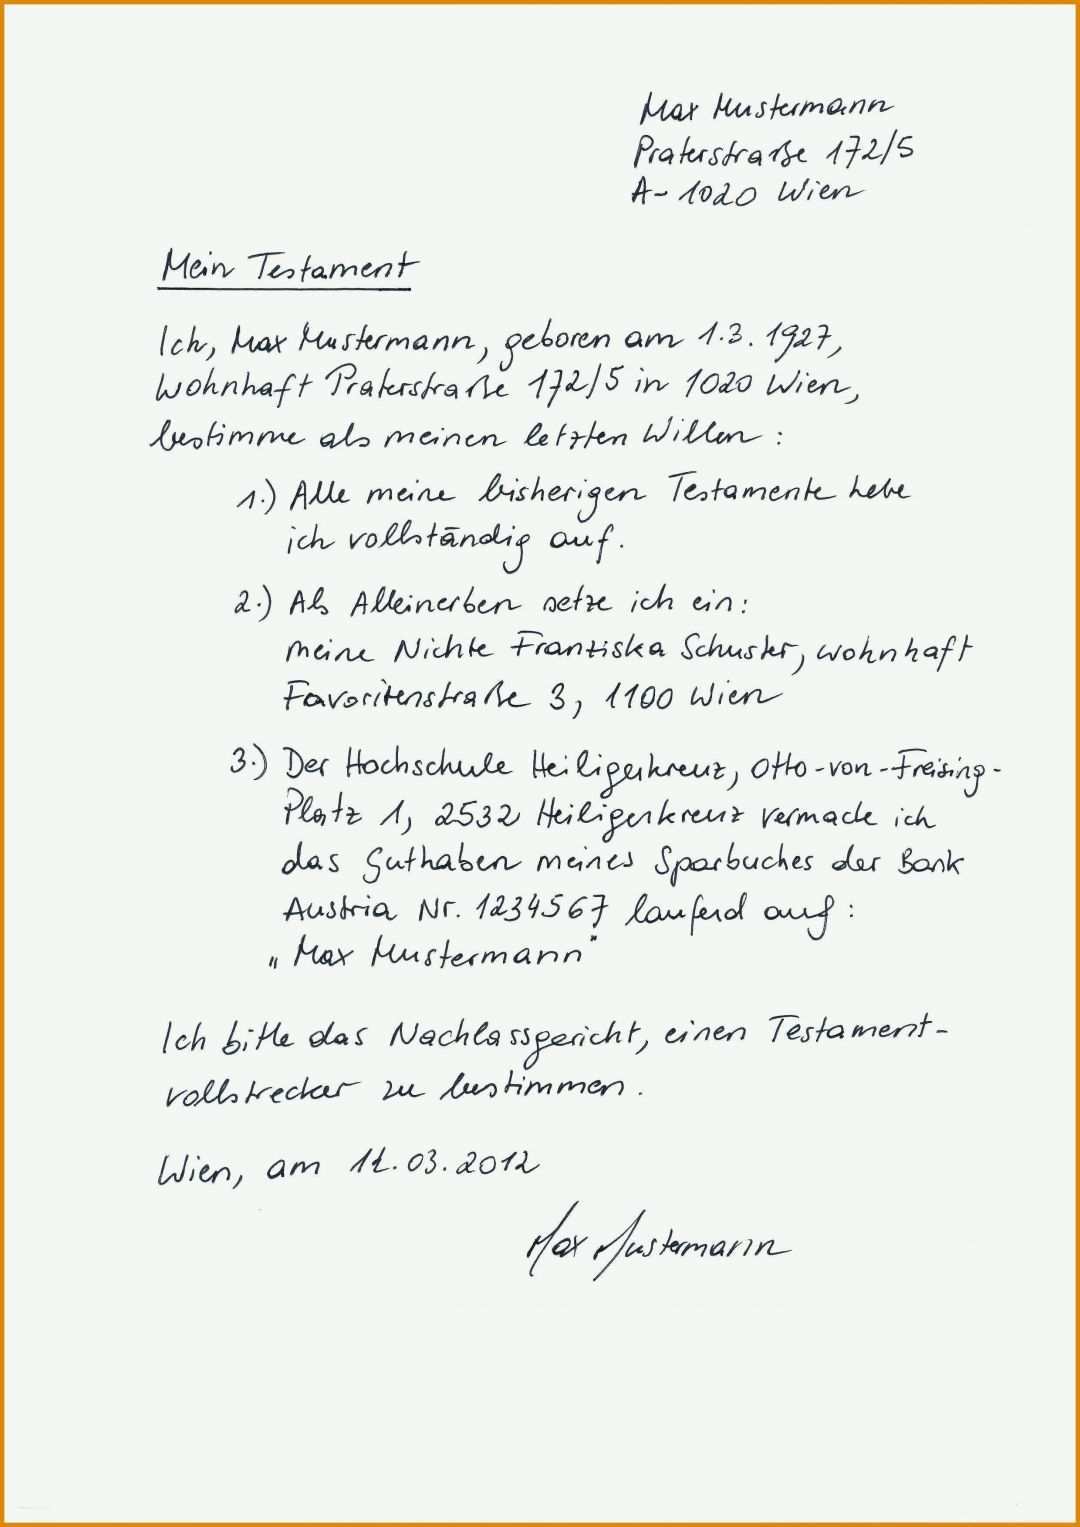 Max Mustermann
Praterstraße 172/5
A-1020 Wien
Mein Testament
Ich, Max Mustermann, geboren am 1.3.1927,
wohnhaft Praterstraße 172/5 in 1020 Wien,
bestimme als meinen letzten Willen:
1.) Alle meine bisherigen Testamente hebe
ich vollständig auf.
2.) Als Alleinerben setze ich ein:
meine Nichte Franziska Schuster, wohnhaft
Favoritenstraße 3, 1100 Wien
3.) Der Hochschule Heiligenkreuz, Otto-von-Freising-
Platz 1, 2532 Heiligenkreuz vermache ich
das Guthaben meines Sparbuches der Bank
Austria Nr. 1234567 laufend auf:
„Max Mustermann"
Ich bitte das Nachlassgericht, einen Testament-
vollstrecker zu bestimmen.
Wien, am 12.03.2012
Max Mustermann